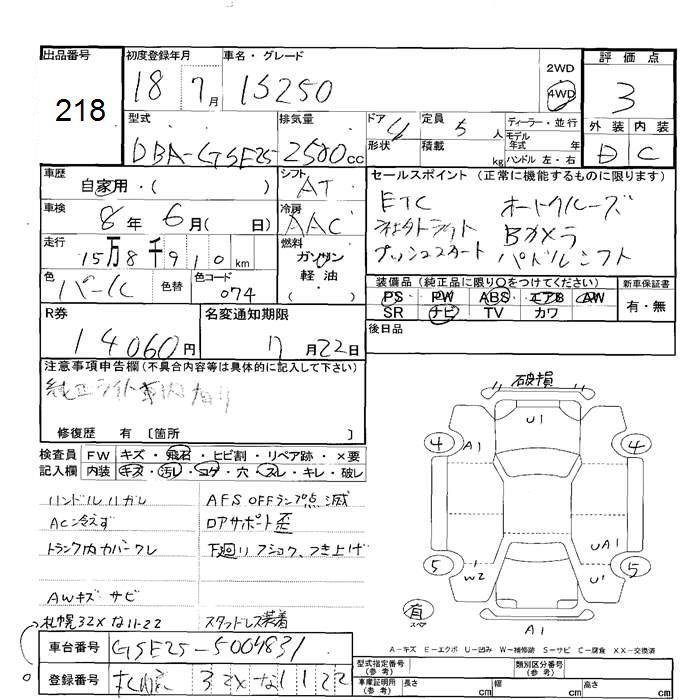 出品番号
218
初度登録年月
18 7 月
車名・グレード
IS250
2WD
4WD
評価点
3
型式
DBA-GSE25-
排気量
2500 cc
ドア 4
形状
定員 5 人
積載 kg
ディーラー・並行
モデル年式 年
ハンドル 左・右
外装 内装
D C
車歴
自家用・( )
シフト
AT
車検
8 年 6 月 ( 日)
冷房
AAC
走行
15万8千910 km
燃料
ガソリン
軽油
( )
色
パール
色替
色コード
074
セールスポイント (正常に機能するものに限ります)
ETC オートクルーズ
Bカメラ
プッシュスタート パドルシフト
装備品 (純正品に限り〇をつけてください)
PS PW ABS エアB AW
SR ナビ TV カワ
新車保証書
有・無
R券
14060円
名変通知期限
7 月 22 日
後日品
注意事項申告欄 (不具合内容等は具体的に記入して下さい)
純正ライト車内
修復歴 有 〔箇所 〕
検査員記入欄
FW キズ・飛石・ヒビ割・リペア跡・×要
内装 キズ・汚レ・コゲ・穴・スレ・キレ・破レ
ハンドルハガレ AFS OFFランプ点滅
AC冷えず ロアサポート歪
トランク内カバークレ 下廻りフショク、つき上げ
AWキズ サビ
札幌32X な11-22 スタッドレス装着
車台番号
GSE25-5004831
登録番号
札幌 32X な1122
破損
U1
A1
4 4
UA1
5 5
W2
U1
有
スペア
A1
A-キズ E-エクボ U-凹み W-補修跡 S-サビ C-腐食 XX-交換済
型式指定番号(参考)
類別区分番号(参考)
車庫証明用(参考) 長さ cm 幅 cm 高さ cm